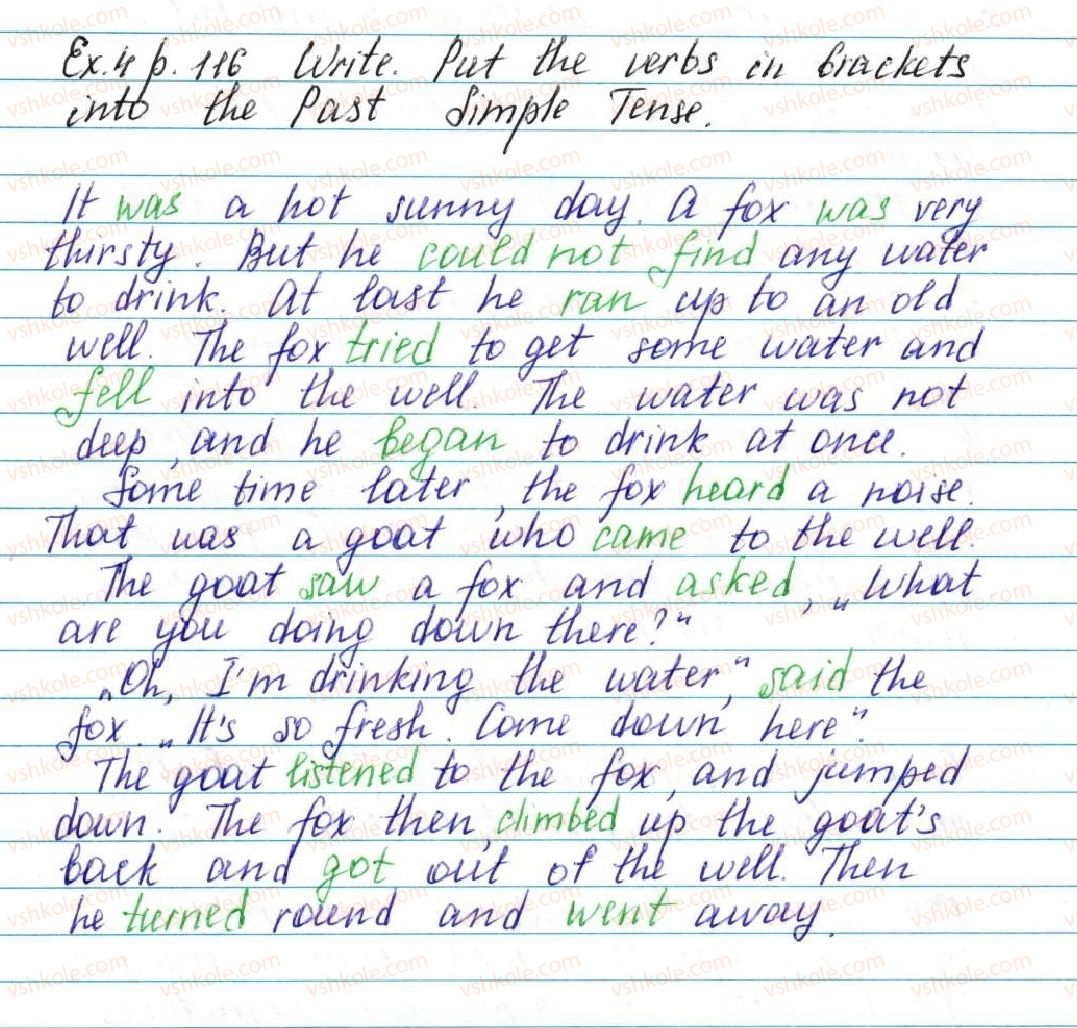 Ex. 4 p. 116 Write. Put the verbs in brackets
into the Past Simple Tense.
It was a hot sunny day. A fox was very
thirsty. But he could not find any water
to drink. At last he ran up to an old
well. The fox tried to get some water and
fell into the well. The water was not
deep, and he began to drink at once.
Some time later, the fox heard a noise.
That was a goat who came to the well.
The goat saw a fox and asked, „What
are you doing down there?"
„Oh, I'm drinking the water," said the
fox. „It's so fresh. Come down here".
The goat listened to the fox, and jumped
down. The fox then climbed up the goat's
back and got out of the well. Then
he turned round and went away.
vshkole.com